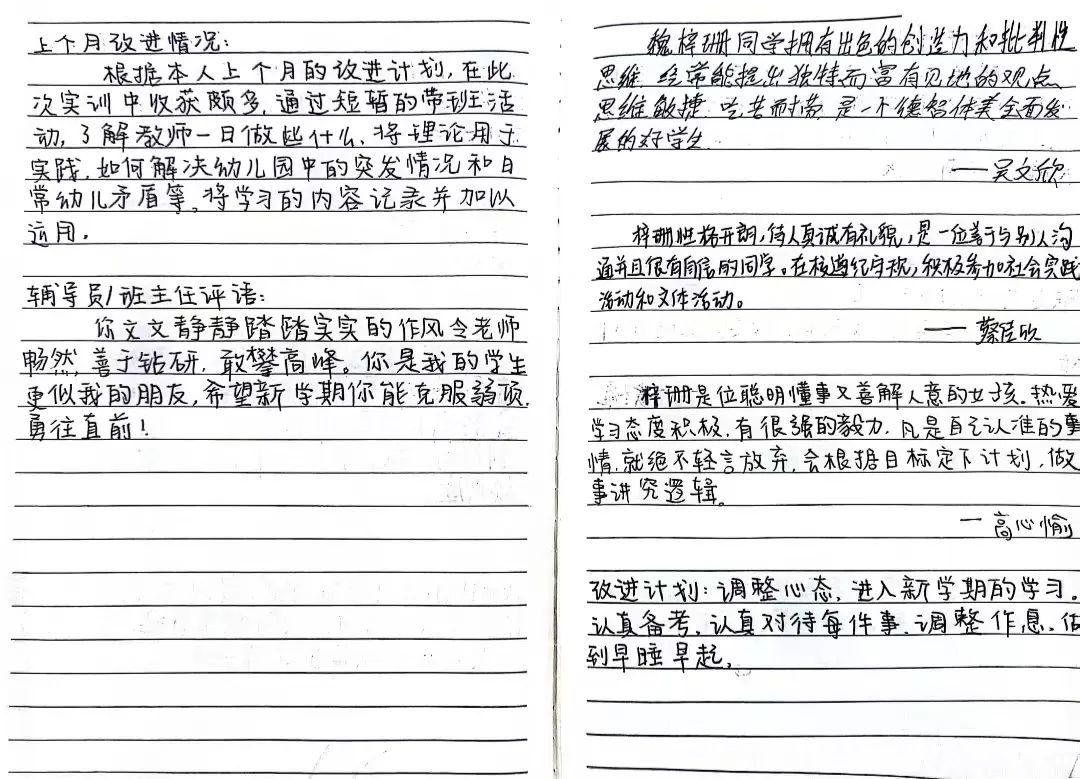 上个月改进情况：
根据本人上个月的改进计划，在此
次实训中收获颇多，通过短暂的带班活
动，了解教师一日做些什么，将理论用于
实践，如何解决幼儿园中的突发情况和日
常幼儿矛盾等。将学习的内容记录并加以
运用。
辅导员/班主任评语：
你文文静静踏踏实实的作风令老师
畅然，善于钻研，敢攀高峰。你是我的学生
更似我的朋友，希望新学期你能克服弱项，
勇往直前！
魏梓珊同学拥有出色的创造力和批判性
思维，经常能提出独特而富有见地的观点，
思维敏捷，吃苦而耐劳，是一个德智体美全面发
展的好学生
——吴文欣
梓珊性格开朗，待人真诚有礼貌，是一位善于与别人沟
通并且很有同的同学。在校遵纪守规，积极参加社会实践
活动和文体活动。
——蔡佳欣
梓珊是位聪明懂事又善解人意的女孩。热爱
学习态度积极，有很强的毅力，凡是自己认准的事
情，就绝不轻言放弃，会根据目标定下计划，做
事讲究逻辑。
—高心愉
改进计划：调整心态，进入新学期的学习。
认真备考，认真对待每件事，调整作息，做
到早睡早起。